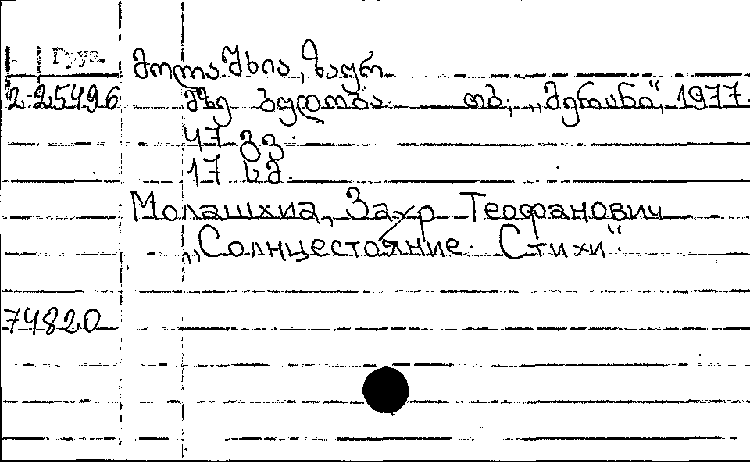 Груз.
მოლაშხია, ზაურ
2-25496 მზე ბუდობა თბ., „მერანი“, 1977.
47 გვ.
17 სმ.
Молашхиа, Заур Теофанович
„Солнцестояние. Стихи“.
74820